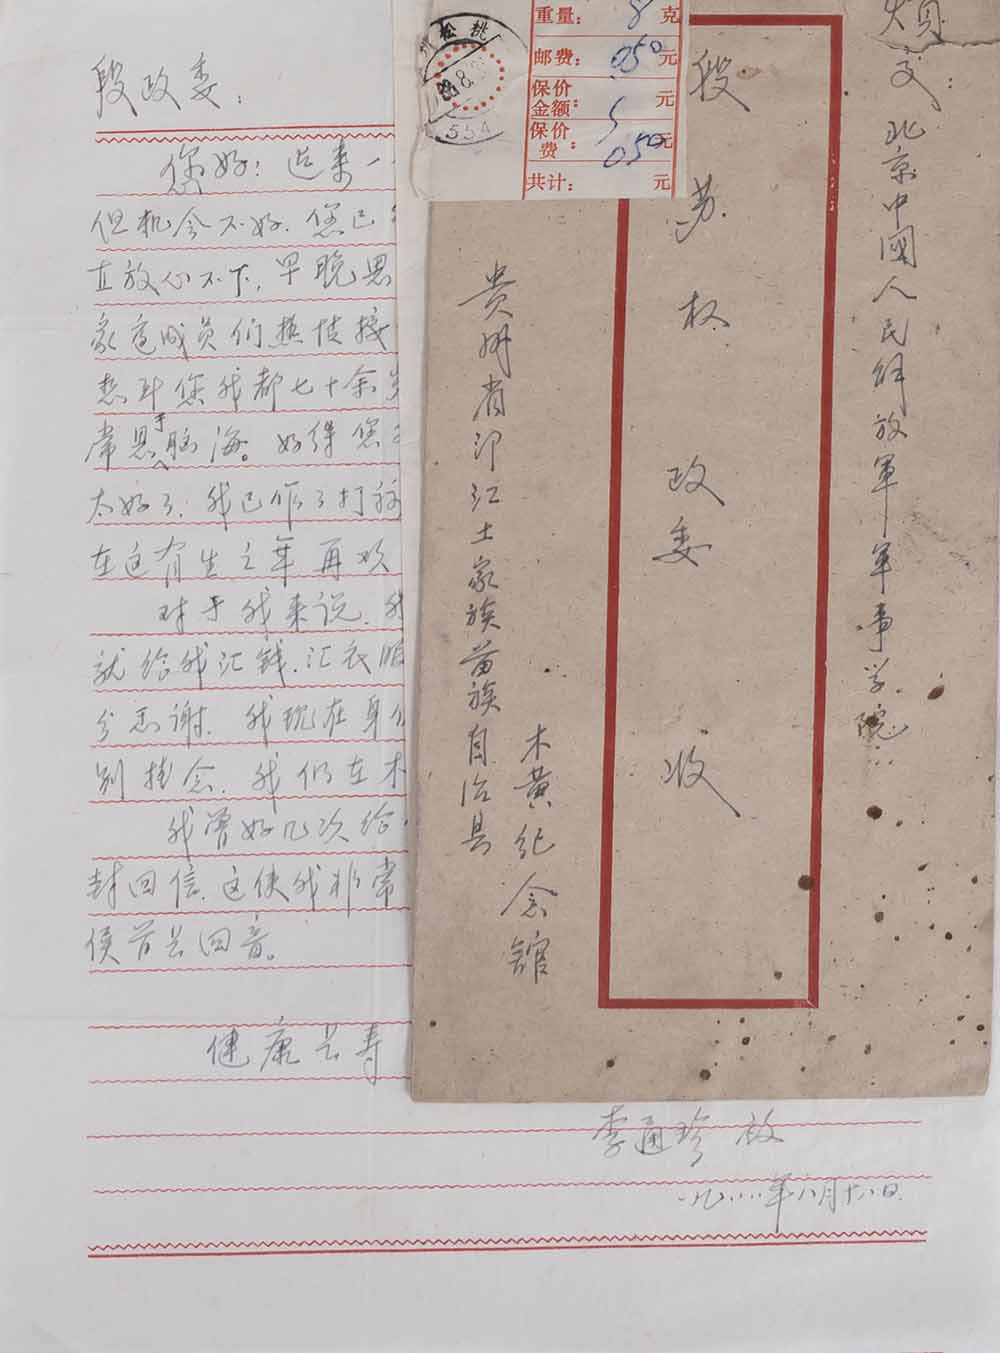 段政委：
您好！近来一
但机会不好.您已
直放心不下,早晚思
家庭成员们热情接
想到您我都七十余岁
常思于脑海。好得您
太好了.我已作了打
在这有生之年再次
对于我来说.我
就给我汇钱.汇衣服
分感谢.我现在身
别挂念.我们在木
我曾好几次给
封回信.这使我非常
候首长回音。
健康长寿
李通珍 啟
一九八八年八月十八日.
松桃
554
重量： 8 克
邮费： 050 元
保价金额： 元
保价费： 050 元
共计： 元
烦交：北京中國人民解放軍军事学院
段苏权政委 收
贵州省印江土家族苗族自治县
木黄纪念館